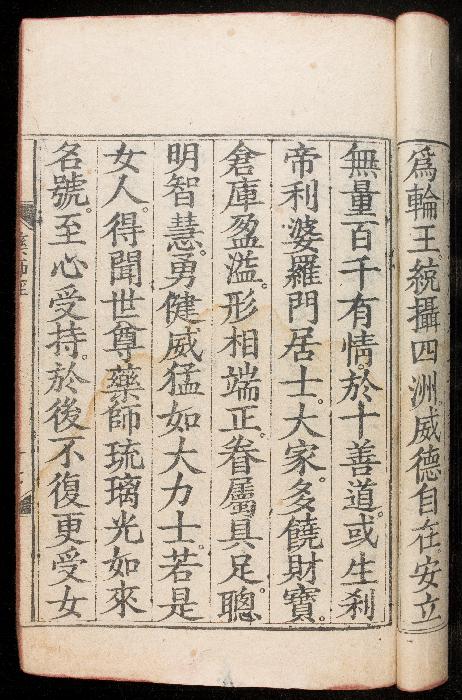 爲輪王。統攝四洲。威德自在。安立
無量百千有情。於十善道。或生刹
帝利婆羅門居士。大家。多饒財寶。
倉庫盈溢。形相端正。眷屬具足。聰
明智慧。勇健威猛。如大力士。若是
女人。得聞世尊藥師琉璃光如來
名號。至心受持。於後不復更受女